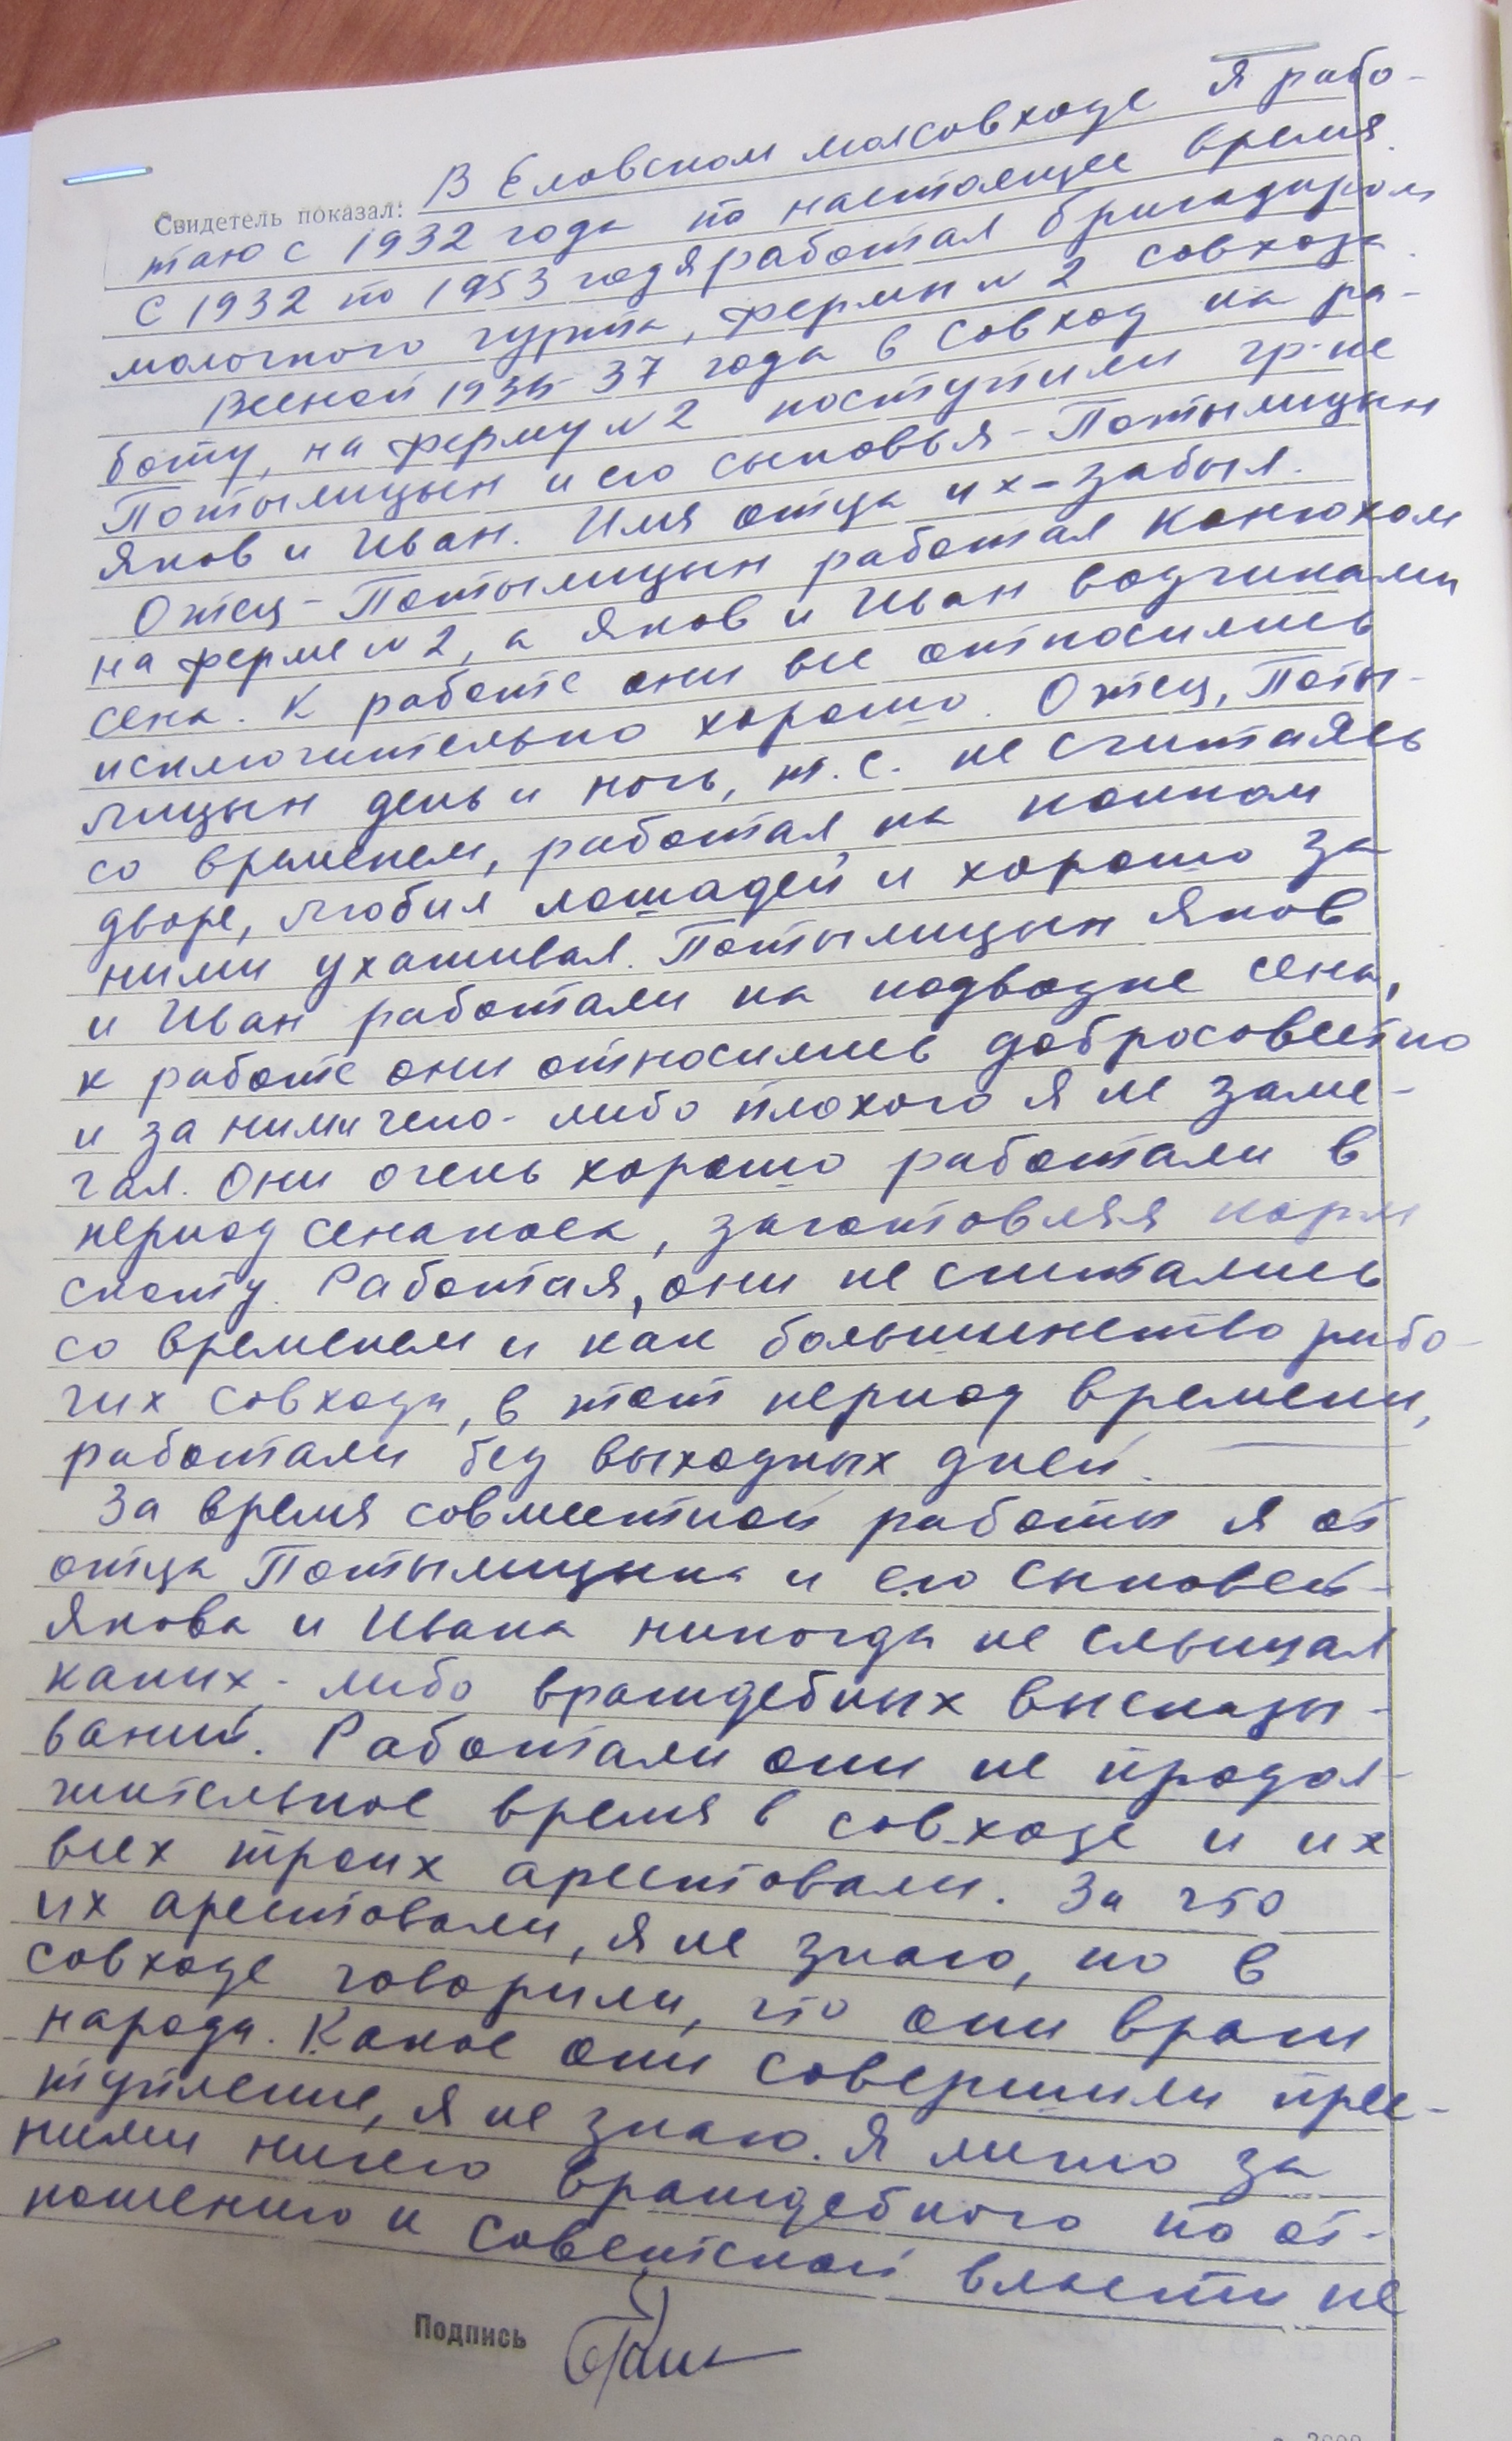 Свидетель показал: В Еловском мясовхозе Я рабо-
таю с 1932 года по настоящее время.
С 1932 по 1953 год я работал бригадиром
молочного гурта, фермы №2 совхоза.
Весной 1936-37 года в совхоз на ра-
боту, на ферму №2 поступили гр-не
Потылицын и его сыновья - Потылицын
Яков и Иван. Имя отца их - забыл.
Отец - Потылицын работал конюхом
на ферме №2, а Яков и Иван возчиками
сена. К работе они все относились
исключительно хорошо. Отец, Поты-
лицын день и ночь, т.е. не считаясь
со временем, работал на конном
дворе, любил лошадей и хорошо за
ними ухаживал. Потылицын Яков
и Иван работали на подвозке сена,
к работе они относились добросовестно
и за ними чего-либо плохого я не заме-
чал. Они очень хорошо работали в
период сенокоса, заготовляя корм
скоту. Работая, они не считались
со временем и как большинство рабо-
чих совхоза, в тот период времени,
работали без выходных дней.
За время совместной работы я от
отца Потылицына и его сыновей -
Якова и Ивана никогда не слышал
каких-либо враждебных высказы-
ваний. Работали они не продол-
жительное время в совхозе и их
всех троих арестовали. За что
их арестовали, я не знаю, но в
совхозе говорили, что они враги
народа. Какое они совершили прес-
тупление, я не знаю. Я лично за
ними ничего враждебного по от-
ношению к советской власти не
Подпись